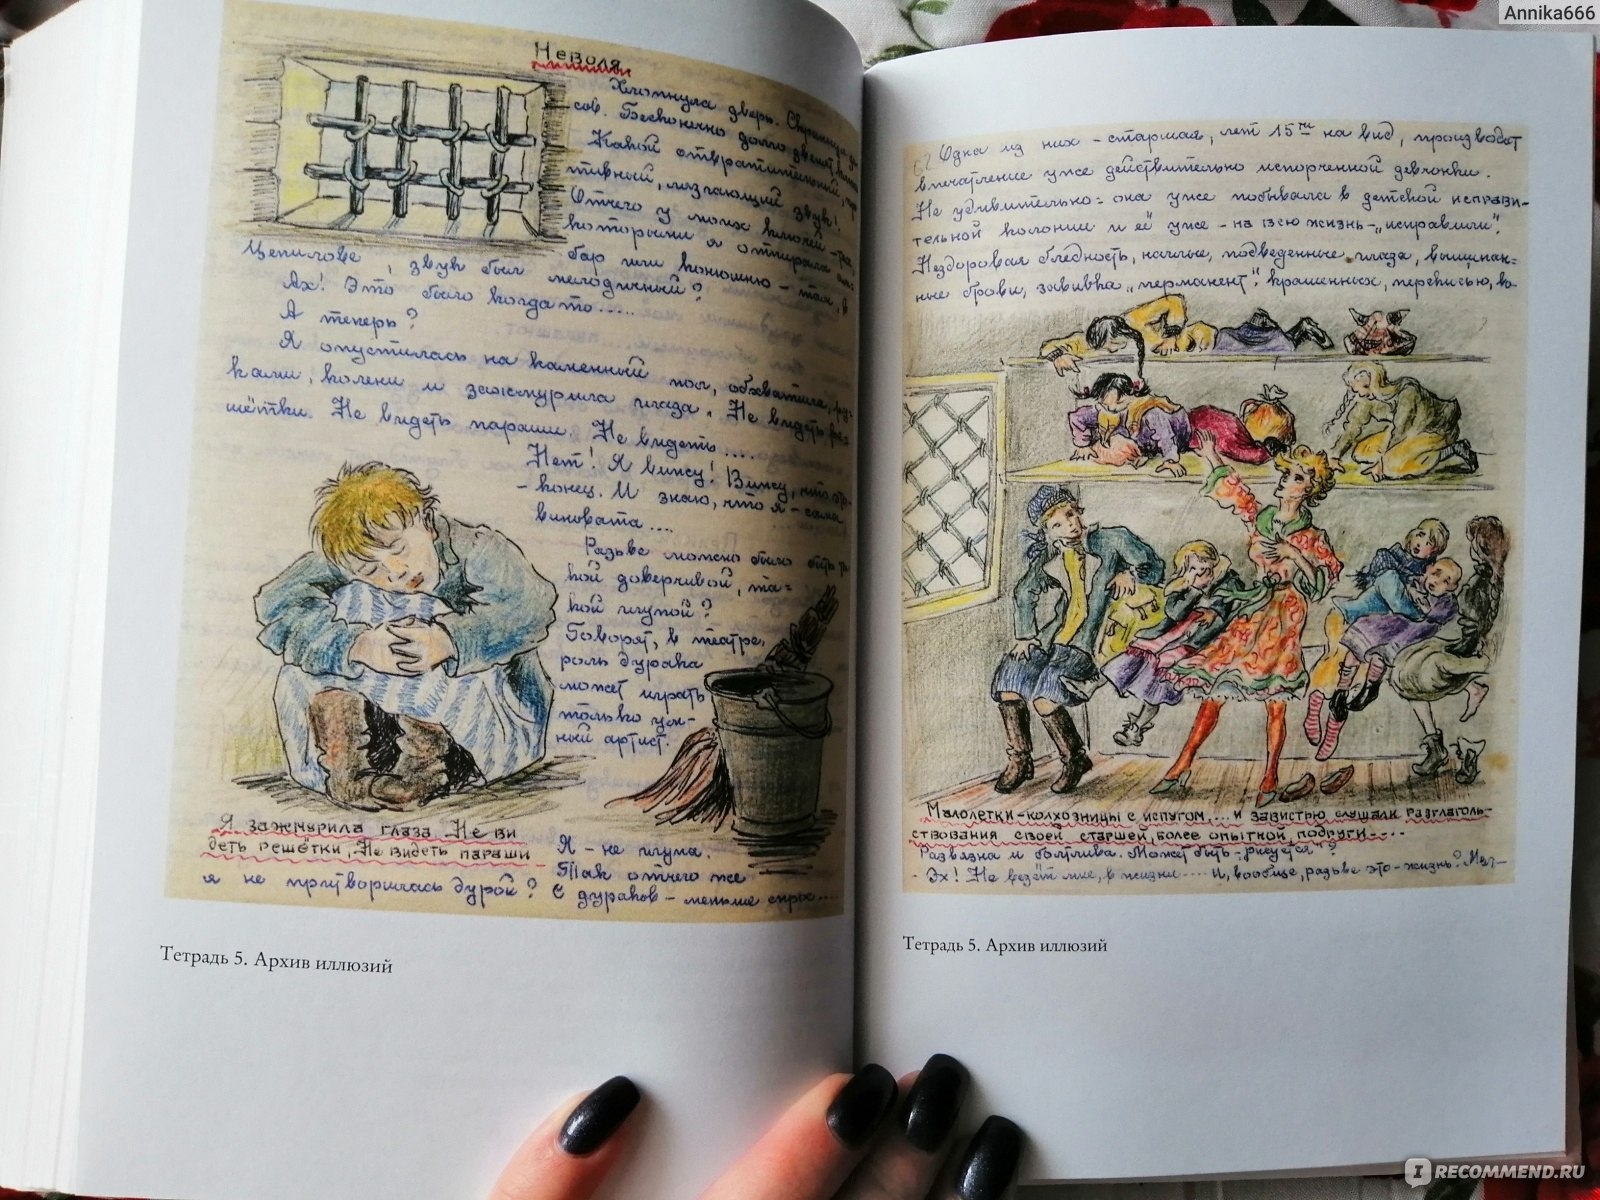 Annika666
Неволя
Хлопнула дверь. Скрежнула за-
сов. Бесконечно долго звенят ключи
Какой отвратительный, про-
тивный, лязгающий звук!
Отчего у моих ключей –
которыми я отпирала ам-
бар или конюшню – там, в
Цепилове звук был мелодичный?
Ах! Это было когда то.....
А теперь?
Я опустилась на каменный пол, обхватила ру-
ками, колени и зажмурила глаза. Не видеть реш-
шётки. Не видеть параши. Не видеть....
Нет! Я вижу! Вижу, что это
– конец. И знаю, что я – сама
виновата....
Разьве можно было быть та-
кой доверчивой, та-
кой глупой?
Говорят, в театре,
роль дурака
может играть
только ум-
ный артист.
Я зажмурила глаза. Не ви
деть решётки, Не видеть параши
Я – не глупа.
Так отчего же
я не притворилась дурой? С дураков – меньше спрос....
Тетрадь 5. Архив иллюзий
Одна из них – старшая, лет 15ти на вид, производит
впечатление уже действительно испорченной девчонки.
Не удивительно: она уже побывала в детской исправи-
тельной колонии и её уже – на всю жизнь – „исправили“.
Нездоровая бледность, наглые, подведенные глаза, выщипан-
ные брови, завивка „перманент“, крашенных, перекисью, во-
Малолетки-колхозницы с испугом.... и завистью слушали разглаголь-
ствования своей старшей, более опытной подруги....
Развязна и болтлива. Может быть – „рисуется“?
– Эх! Не везёт мне, в жизни.... И, вообще, разьве это – жизнь?
Тетрадь 5. Архив иллюзий
IRECOMMEND.RU